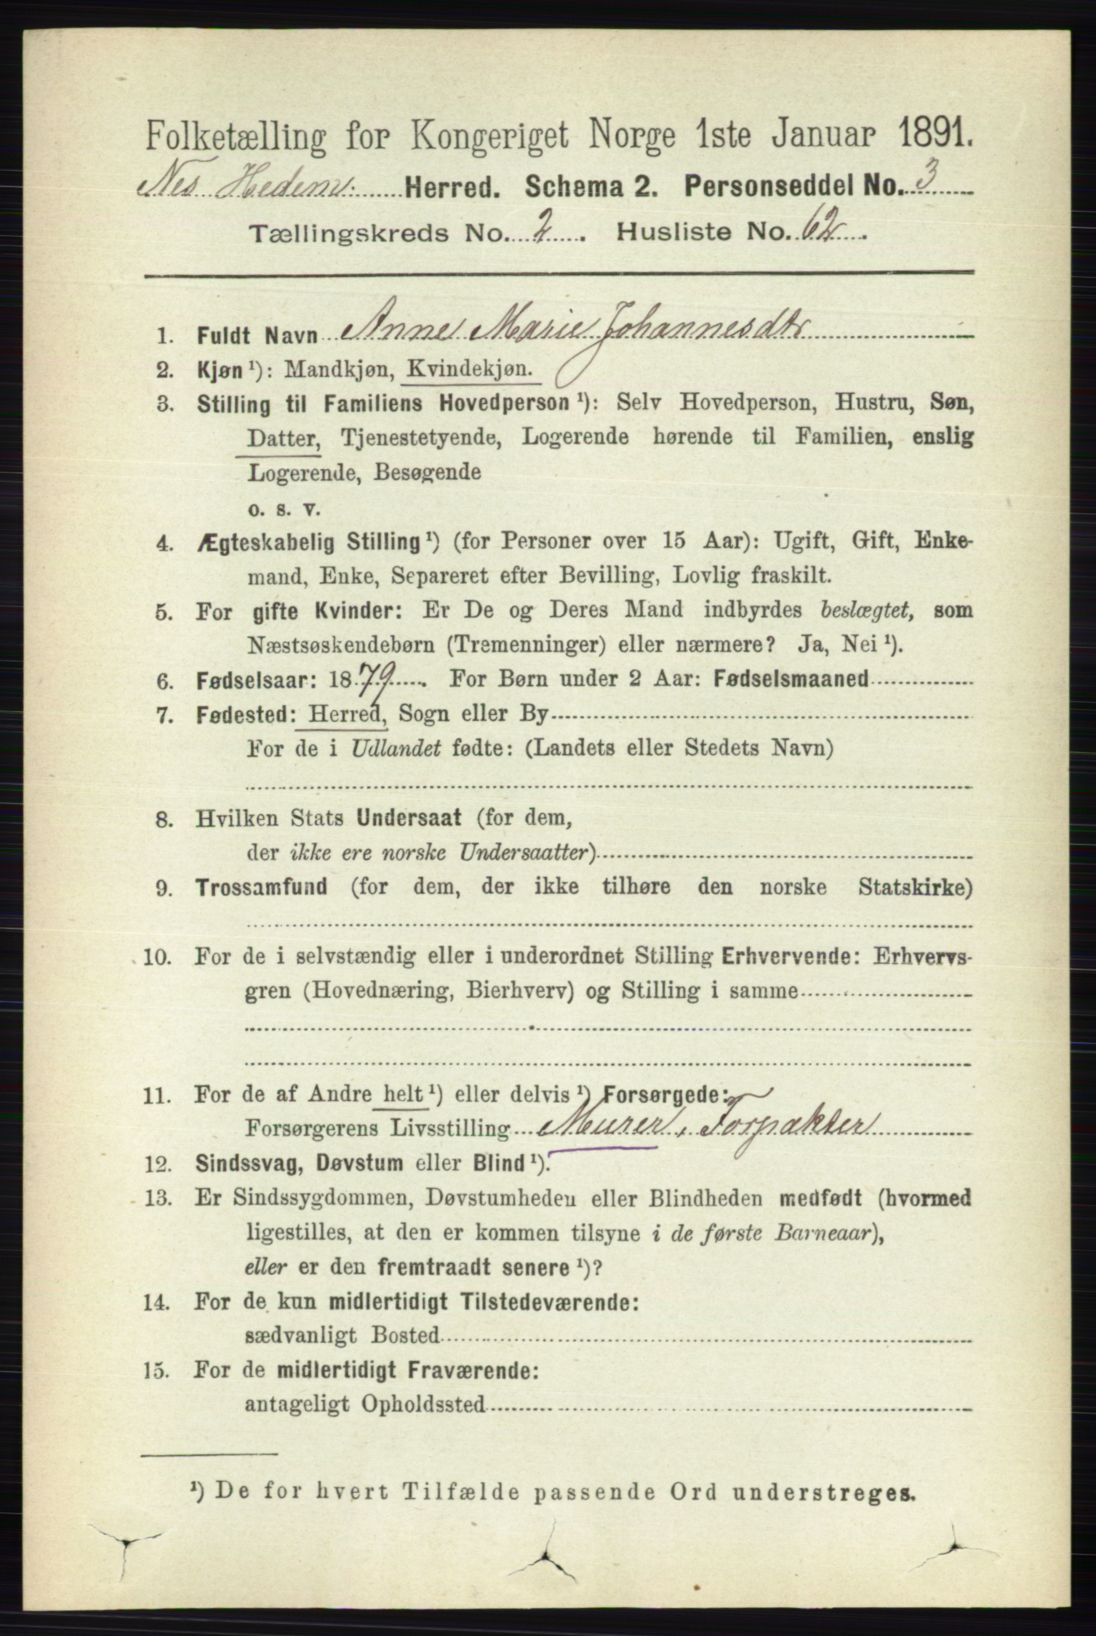 Folketælling for Kongeriget Norge 1ste Januar 1891.
Nes Hedem. Herred. Schema 2. Personseddel No. 3
Tællingskreds No. 2. Husliste No. 62.
1. Fuldt Navn Anne Marie Johannesdtr
2. Kjøn ¹): Mandkjøn, Kvindekjøn.
3. Stilling til Familiens Hovedperson ¹): Selv Hovedperson, Hustru, Søn,
Datter, Tjenestetyende, Logerende hørende til Familien, enslig
Logerende, Besøgende
o. s. v.
4. Ægteskabelig Stilling ¹) (for Personer over 15 Aar): Ugift, Gift, Enke-
mand, Enke, Separeret efter Bevilling, Lovlig fraskilt.
5. For gifte Kvinder: Er De og Deres Mand indbyrdes beslægtet, som
Næstsøskendebørn (Tremenninger) eller nærmere? Ja, Nei ¹).
6. Fødselsaar: 1879. For Børn under 2 Aar: Fødselsmaaned
7. Fødested: Herred, Sogn eller By
For de i Udlandet fødte: (Landets eller Stedets Navn)
8. Hvilken Stats Undersaat (for dem,
der ikke ere norske Undersaatter)
9. Trossamfund (for dem, der ikke tilhøre den norske Statskirke)
10. For de i selvstændig eller i underordnet Stilling Erhvervende: Erhvervs-
gren (Hovednæring, Bierhverv) og Stilling i samme
11. For de af Andre helt ¹) eller delvis ¹) Forsørgede:
Forsørgerens Livsstilling Murer, Forpakter
12. Sindssvag, Døvstum eller Blind ¹).
13. Er Sindssygdommen, Døvstumheden eller Blindheden medfødt (hvormed
ligestilles, at den er kommen tilsyne i de første Barneaar),
eller er den fremtraadt senere ¹)?
14. For de kun midlertidigt Tilstedeværende:
sædvanligt Bosted
15. For de midlertidigt Fraværende:
antageligt Opholdssted
¹) De for hvert Tilfælde passende Ord understreges.